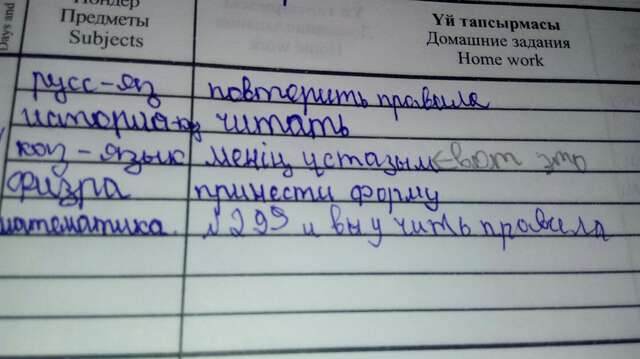 Days and
Пәндер
Предметы
Subjects
Үй тапсырмасы
Домашние задания
Home work
русс-яз повторить правила
история-кз читать
каз-язык менің ұстазым<-вот это
физра принести форму
математика. №299 и выучить правила